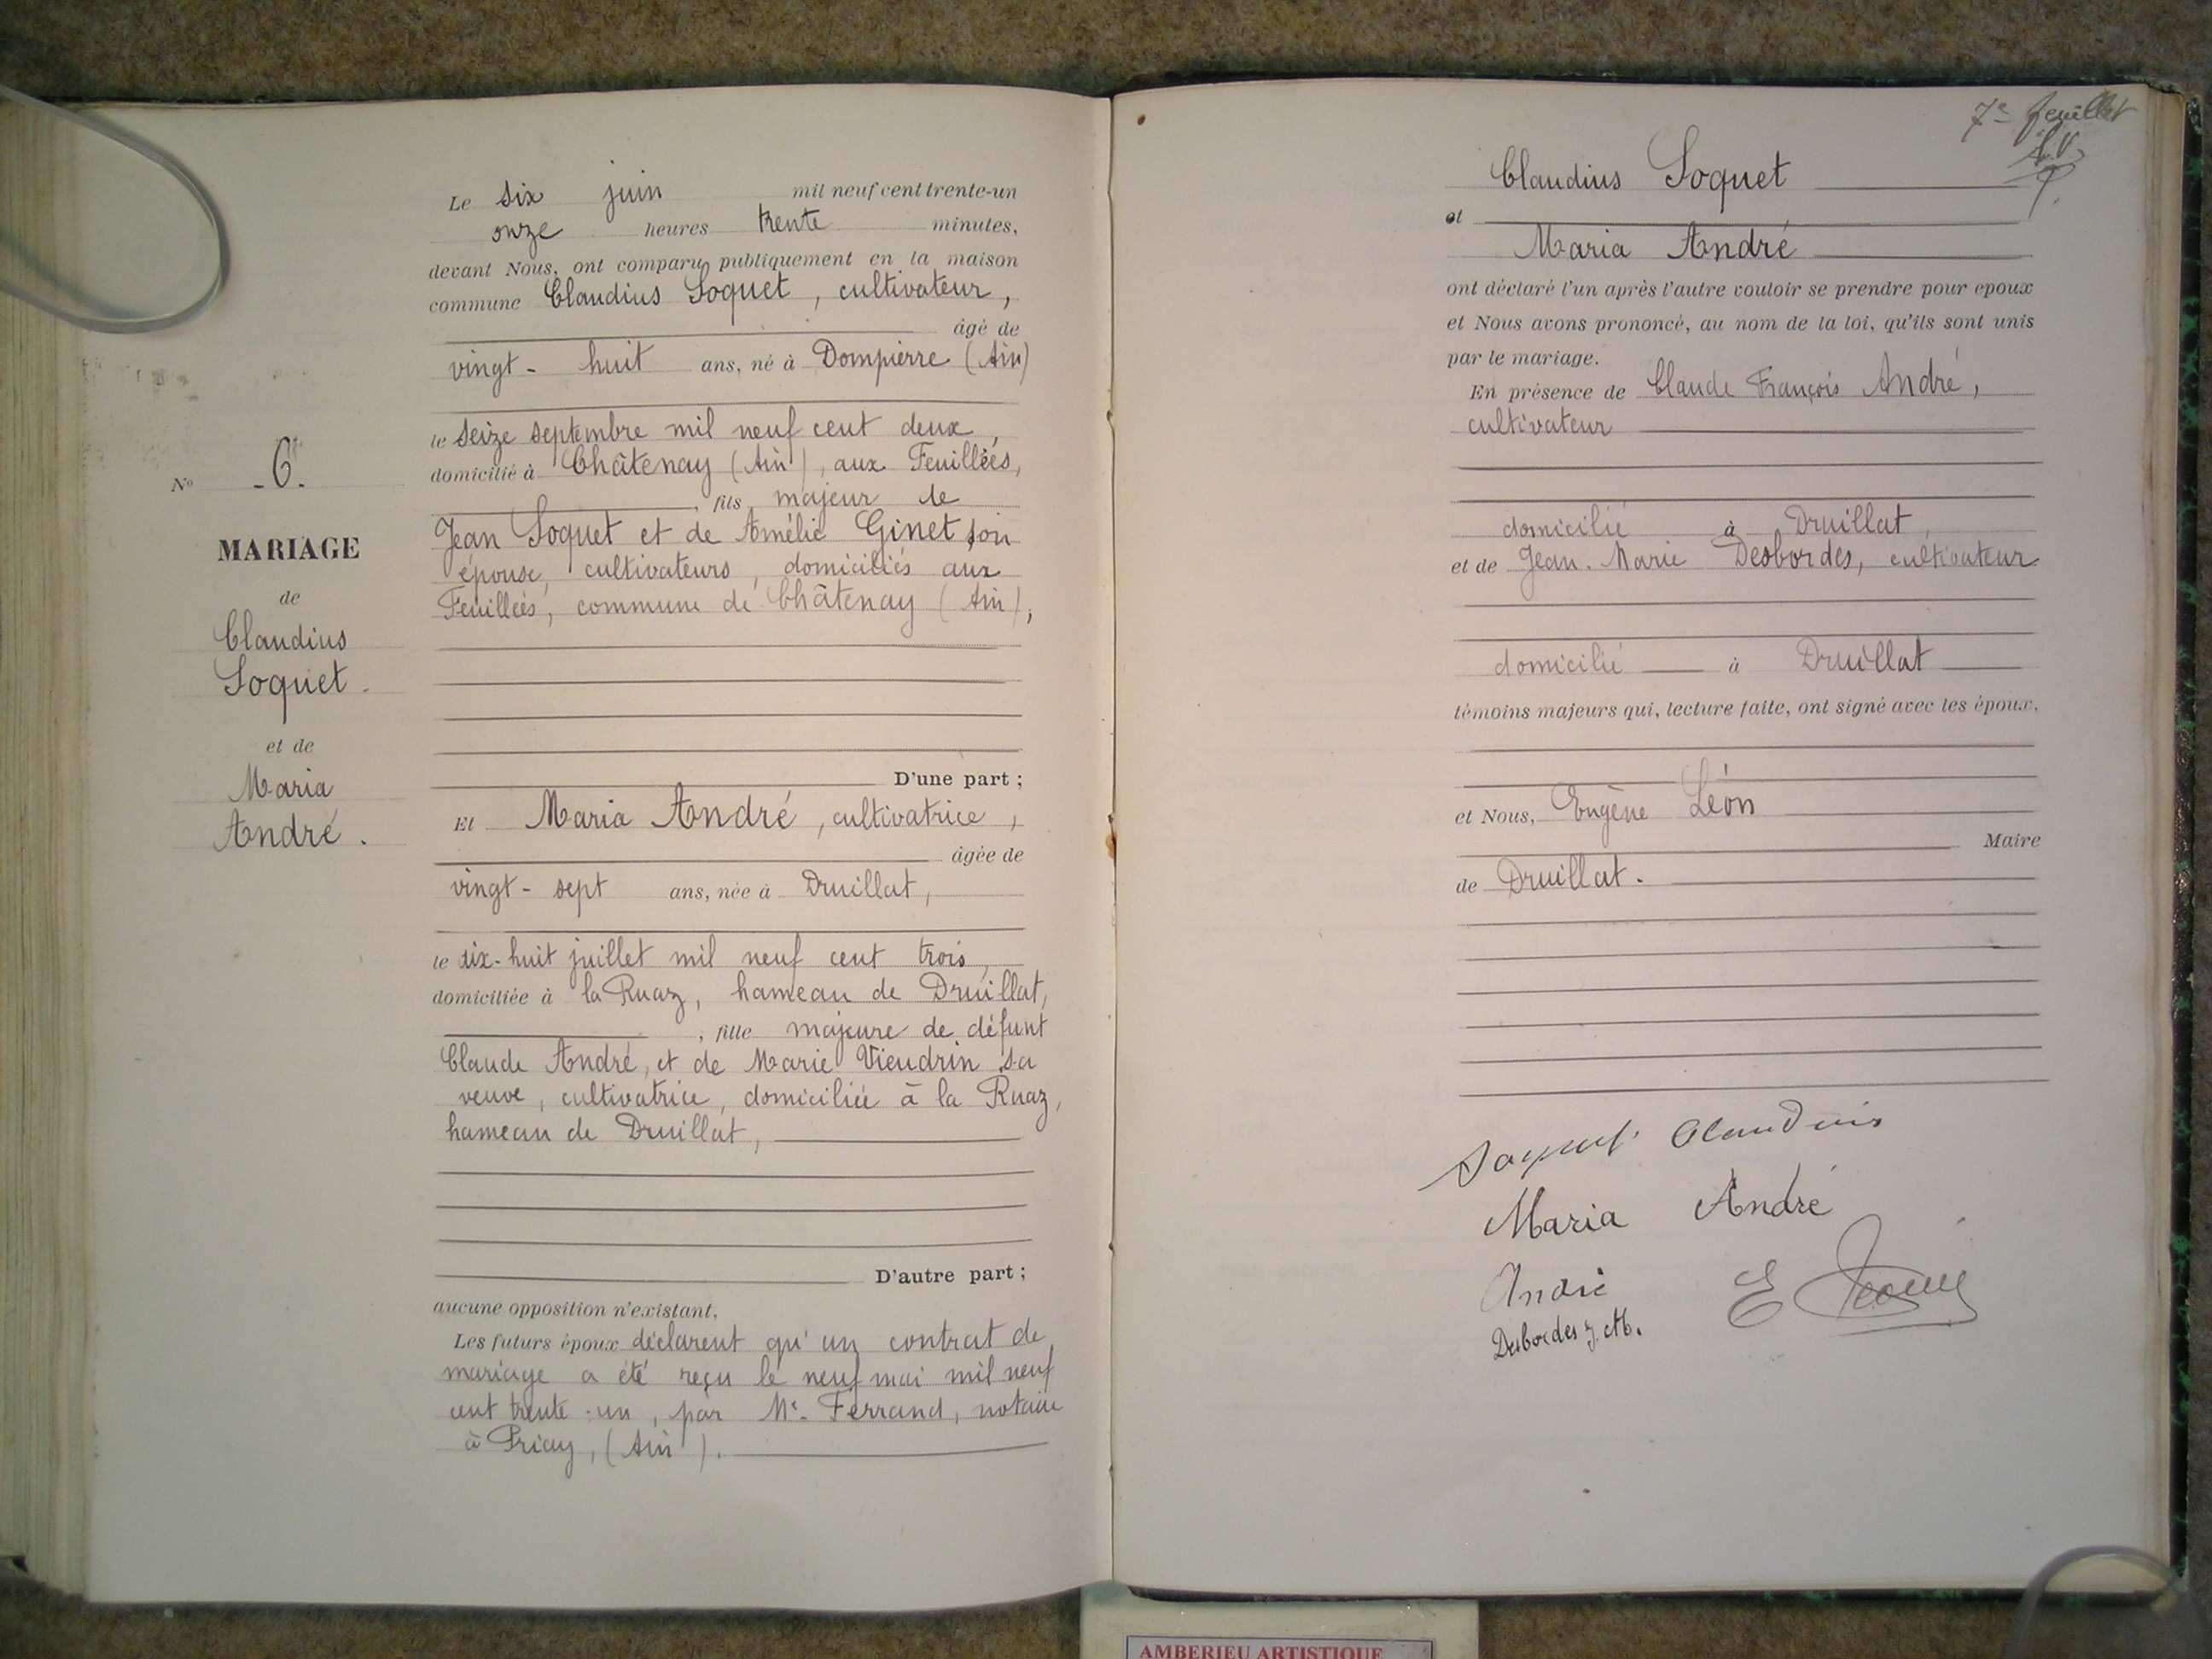 Le six juin mil neuf cent trente-un
onze heures trente minutes,
devant Nous, ont comparu publiquement en la maison
commune Claudius Soquet, cultivateur,
âgé de
vingt-huit ans, né à Dompierre (Ain)
le seize septembre mil neuf cent deux,
domicilié à Châtenay (Ain), aux Feuillées,
, fils majeur de
Jean Soquet et de Amélie Ginet son
épouse, cultivateurs, domiciliés aux
Feuillées, commune de Châtenay (Ain),
D'une part ;
Et Maria André, cultivatrice,
âgée de
vingt-sept ans, née à Druillat,
le dix-huit juillet mil neuf cent trois,
domiciliée à la Ruaz, hameau de Druillat,
, fille majeure de défunt
Claude André, et de Marie Vieudrin sa
veuve, cultivatrice, domiciliée à la Ruaz,
hameau de Druillat,
D'autre part ;
aucune opposition n'existant,
Les futurs époux déclarent qu'un contrat de
mariage a été reçu le neuf mai mil neuf
cent trente-un, par Me. Ferrand, notaire
à Priay, (Ain).
No -6.
MARIAGE
de
Claudius
Soquet.
et de
Maria
André.
7e feuillet
Claudius Soquet
et
Maria André
ont déclaré l'un après l'autre vouloir se prendre pour époux
et Nous avons prononcé, au nom de la loi, qu'ils sont unis
par le mariage.
En présence de Claude François André,
cultivateur
domicilié à Druillat,
et de Jean-Marie Desbordes, cultivateur
domicilié à Druillat
témoins majeurs qui, lecture faite, ont signé avec les époux,
et Nous, Eugène Léon
Maire
de Druillat.
Soquet Claudius
Maria André
André
Desbordes J. M.
AMBERIEU ARTISTIQUE